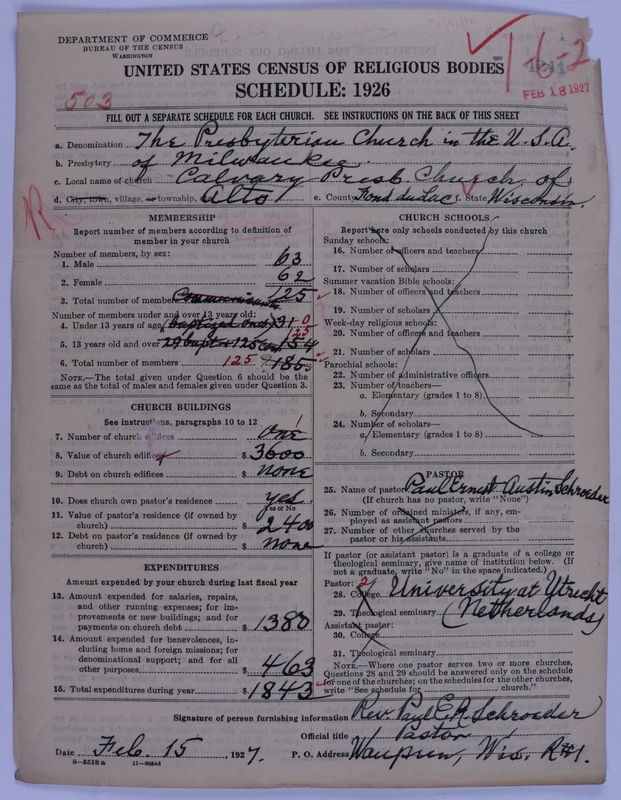 DEPARTMENT OF COMMERCE
BUREAU OF THE CENSUS
WASHINGTON
1-6-2
FEB 18 1927
UNITED STATES CENSUS OF RELIGIOUS BODIES
SCHEDULE: 1926
503
FILL OUT A SEPARATE SCHEDULE FOR EACH CHURCH. SEE INSTRUCTIONS ON THE BACK OF THIS SHEET
a. Denomination The Presbyterian Church in the U.S.A.
b. Presbytery of Milwaukee.
c. Local name of church Calvary Presb. Church of
d. City, town, village, or township Alto e. County Fond du Lac f. State Wisconsin.
R
MEMBERSHIP
Report number of members according to definition of member in your church
Number of members, by sex:
1. Male 63
2. Female 62
3. Total number of members Communicants 125
Number of members under and over 13 years old:
4. Under 13 years of age (baptized only) 31 0
5. 13 years old and over 154 125
6. Total number of members 125 185
NOTE.—The total given under Question 6 should be the same as the total of males and females given under Question 3.
CHURCH BUILDINGS
See instructions, paragraphs 10 to 12
7. Number of church edifices one 1
8. Value of church edifices $ 3600
9. Debt on church edifices $ none
10. Does church own pastor's residence yes
Yes or No
11. Value of pastor's residence (if owned by church) $ 2400
12. Debt on pastor's residence (if owned by church) $ none
EXPENDITURES
Amount expended by your church during last fiscal year
13. Amount expended for salaries, repairs, and other running expenses; for improvements or new buildings; and for payments on church debt $ 1380
14. Amount expended for benevolences, including home and foreign missions; for denominational support; and for all other purposes $ 463
15. Total expenditures during year $ 1843
CHURCH SCHOOLS
Report here only schools conducted by this church
Sunday schools:
16. Number of officers and teachers
17. Number of scholars
Summer vacation Bible schools:
18. Number of officers and teachers
19. Number of scholars
Week-day religious schools:
20. Number of officers and teachers
21. Number of scholars
Parochial schools:
22. Number of administrative officers
23. Number of teachers—
a. Elementary (grades 1 to 8)
b. Secondary
24. Number of scholars—
a. Elementary (grades 1 to 8)
b. Secondary
PASTOR
25. Name of pastor Paul Ernest Austin Schroeder
(If church has no pastor, write "None")
26. Number of ordained ministers, if any, employed as assistant pastors
27. Number of other churches served by the pastor or his assistants
If pastor (or assistant pastor) is a graduate of a college or theological seminary, give name of institution below. (If not a graduate, write "No" in the space indicated.)
Pastor: 2
28. College University at Utrecht
29. Theological seminary (Netherlands)
Assistant pastor:
30. College
31. Theological seminary
NOTE.—Where one pastor serves two or more churches, Questions 28 and 29 should be answered only on the schedule for one of the churches; on the schedules for the other churches, write "See schedule for church."
Signature of person furnishing information Rev. Paul E A Schroeder
Official title Pastor
Date Feb. 15, 1927. P. O. Address Waupun, Wis. R#1.
8-5518 a